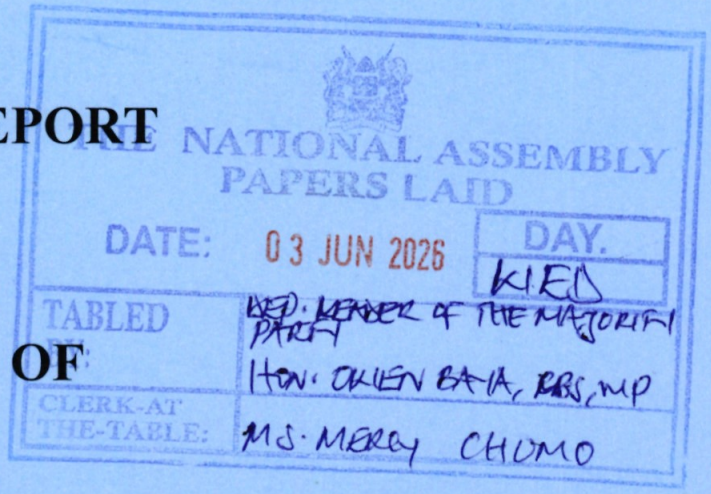 EPORT
THE NATIONAL ASSEMBLY
PAPERS LAID
DATE: 03 JUN 2026 DAY.
WED
TABLED BY: DEP. LEADER OF THE MAJORITY
PARTY
HON. OWEN BAYA, EBS, MP
OF
CLERK-AT THE-TABLE: MS. MERCY CHUMO